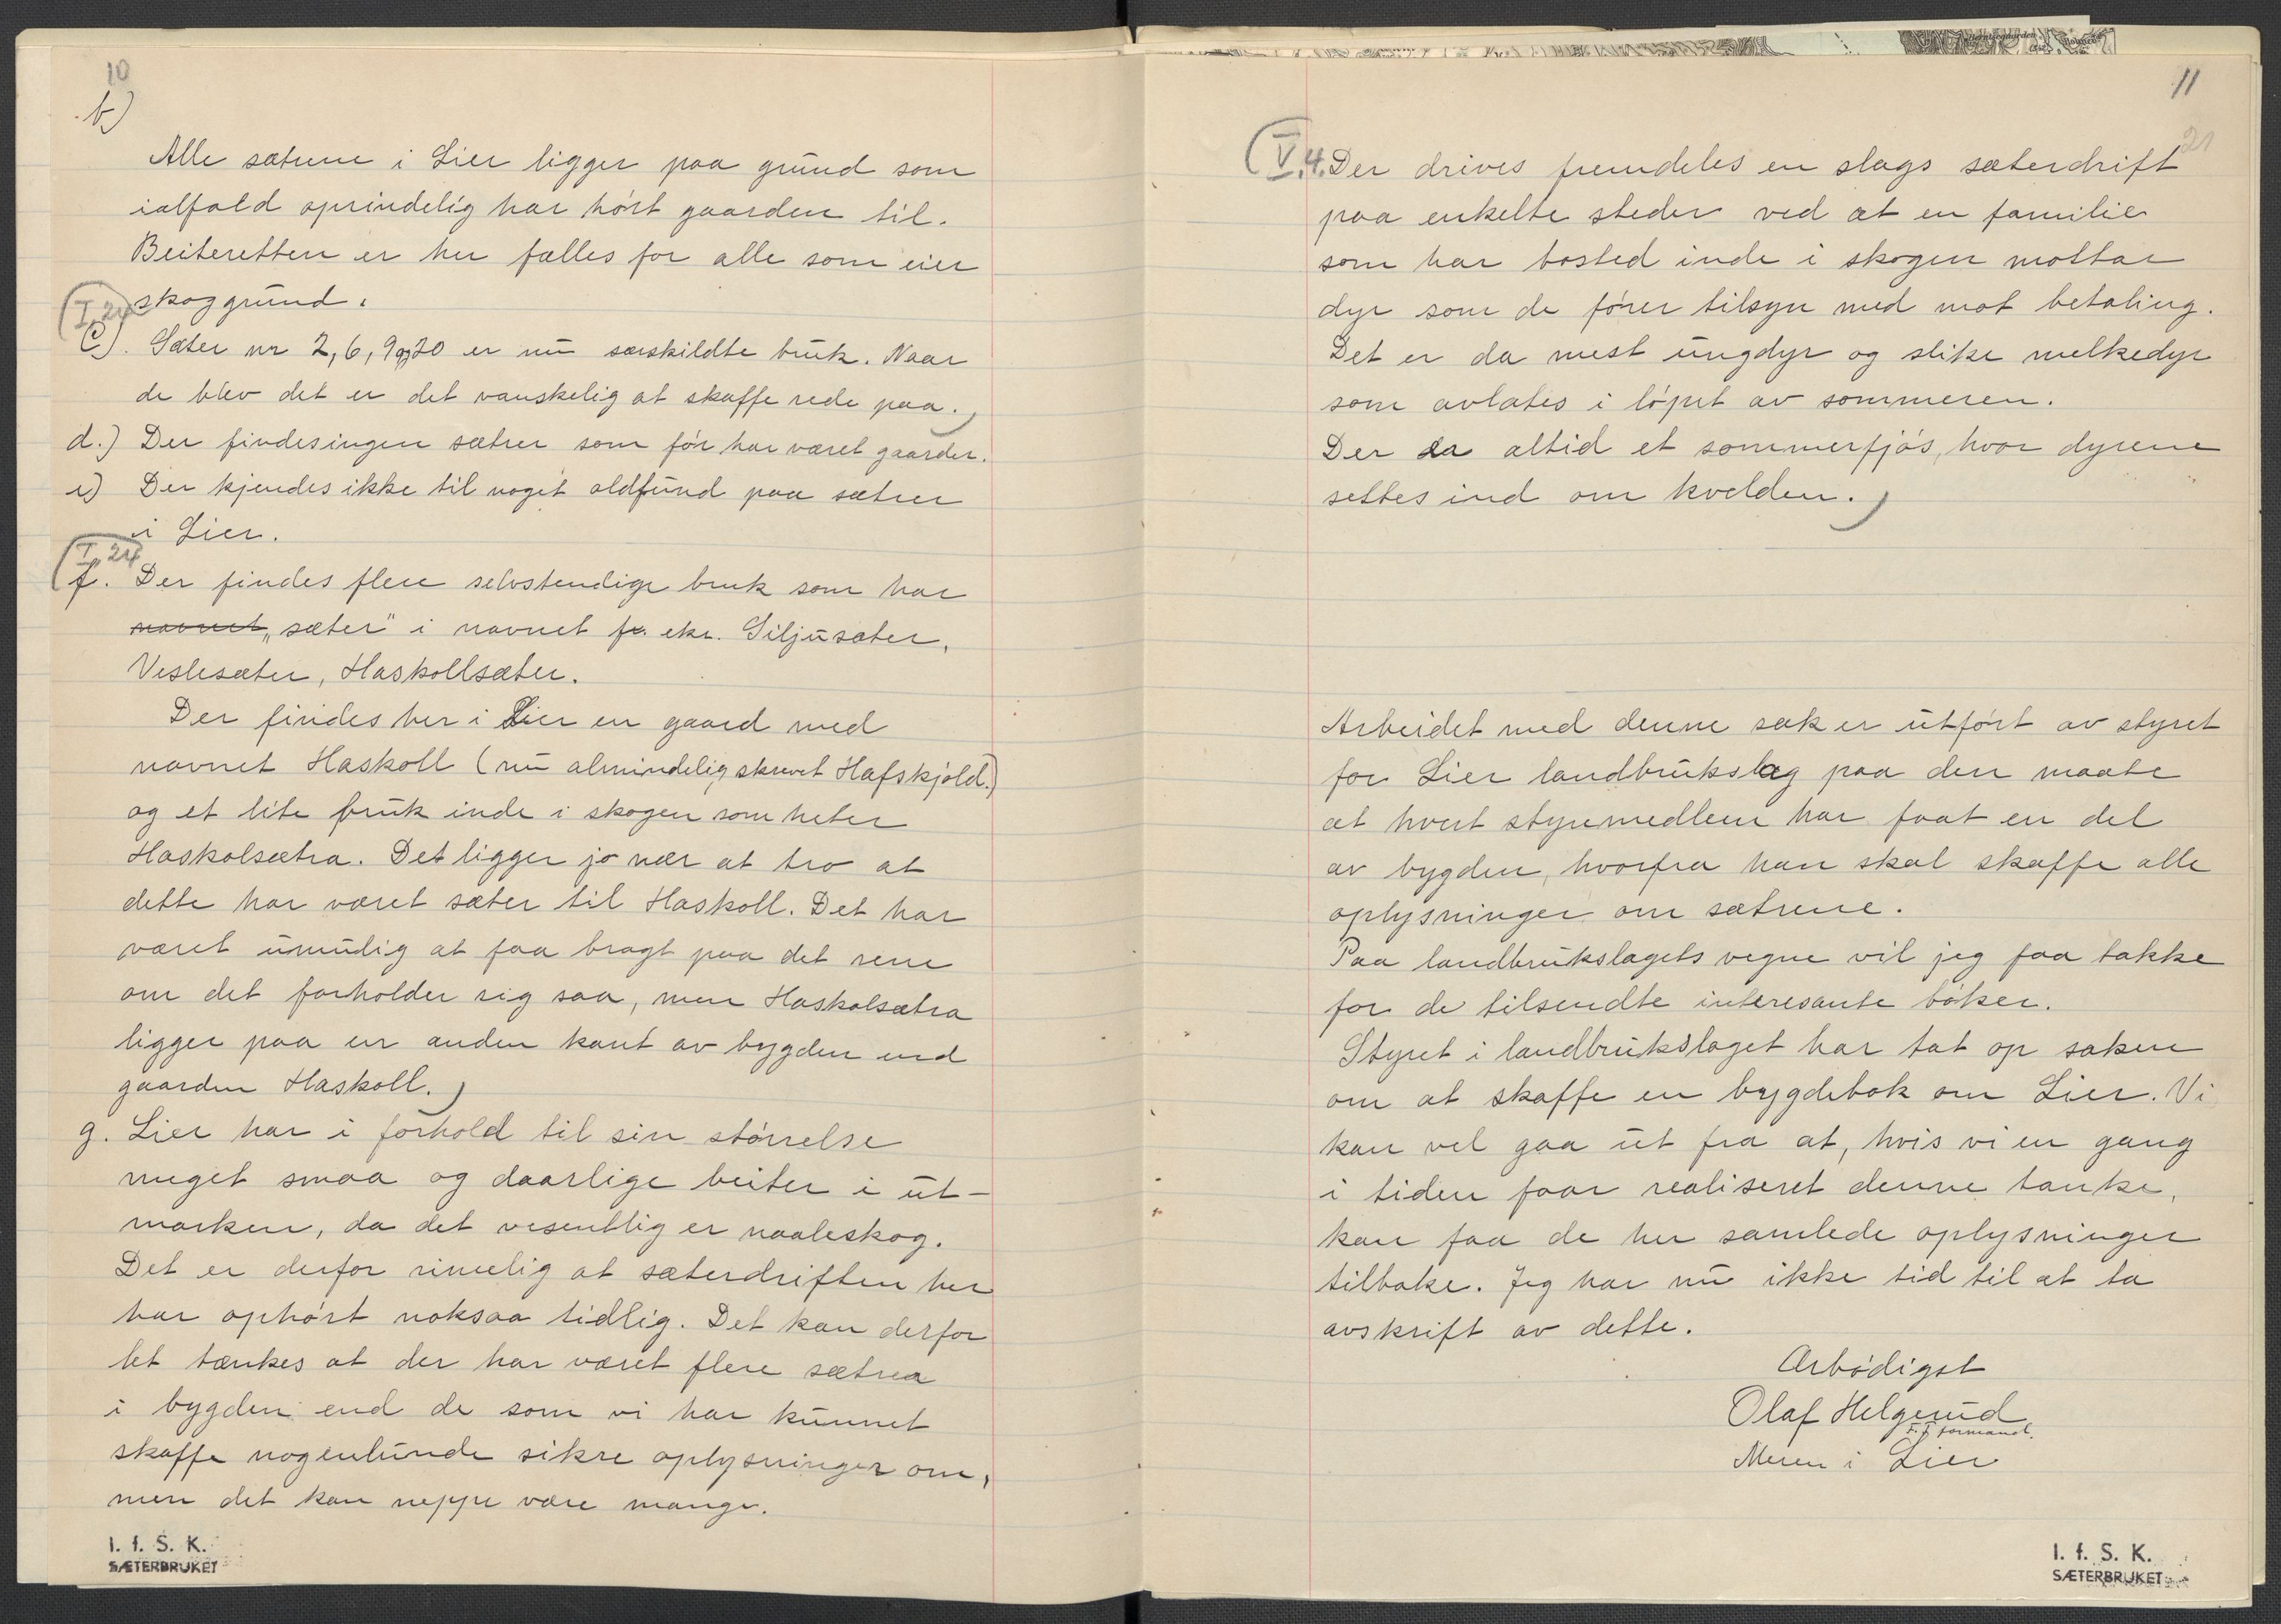 10
b)
Alle sætrene i Lier ligger paa grund som
ialfald oprindelig har hørt gaarden til.
Beiteretten er her fælles for alle som eier
skoggrund.
(I, 24)
C). Sæter nr 2, 6, 9 og 20 er nu særskildte bruk. Naar
de blev det er det vanskelig at skaffe rede paa.)
d.) Der findes ingen sætrer som før har været gaarder.
e) Der kjendes ikke til noget oldfund paa sætrer
i Lier.
(I, 24
f. Der findes flere selvstendige bruk som har
navnet „sæter" i navnet f. eks. Siljusæter,
Veslesæter, Haskollsæter.
Der findes her i Lier en gaard med
navnet Haskoll (nu almindelig skrevet Hafskjold.)
og et lite bruk inde i skogen som heter
Haskolsætra. Det ligger jo nær at tro at
dette har været sæter til Haskoll. Det har
været umulig at faa bragt paa det rene
om det forholder sig saa, men Haskolsætra
ligger paa en anden kant av bygden end
gaarden Haskoll.)
g. Lier har i forhold til sin størrelse
meget smaa og daarlige beiter i ut-
marken, da det vesentlig er naaleskog.
Det er derfor rimelig at sæterdriften her
har ophørt noksaa tidlig. Det kan derfor
let tænkes at der har været flere sætrer
i bygden end de som vi har kunnet
skaffe nogenlunde sikre oplysninger om,
men det kan neppe være mange.
I. f. S. K.
SÆTERBRUKET
11
21
(V. 4. Der drives fremdeles en slags sæterdrift
paa enkelte steder ved at en familie
som har bosted inde i skogen mottar
dyr som de fører tilsyn med mot betaling.
Det er da mest ungdyr og slike melkedyr
som avlates i løpet av sommeren.
Der er altid et sommerfjøs, hvor dyrene
settes ind om kvelden.)
Arbeidet med denne sak er utført av styret
for Lier landbrukslag paa den maate
at hvert styremedlem har faat en del
av bygden, hvorfra han skal skaffe alle
oplysninger om sætrene.
Paa landbrukslagets vegne vil jeg faa takke
for de tilsendte interesante bøker.
Styret i landbrukslaget har tat op saken
om at skaffe en bygdebok om Lier. Vi
kan vel gaa ut fra at, hvis vi en gang
i tiden faar realiseret denne tanke,
kan faa de her samlede oplysninger
tilbake. Jeg har nu ikke tid til at ta
avskrift av dette.
Ærbødigst
Olaf Helgerud
F. T. formand.
Meren i Lier
I. f. S. K.
SÆTERBRUKET